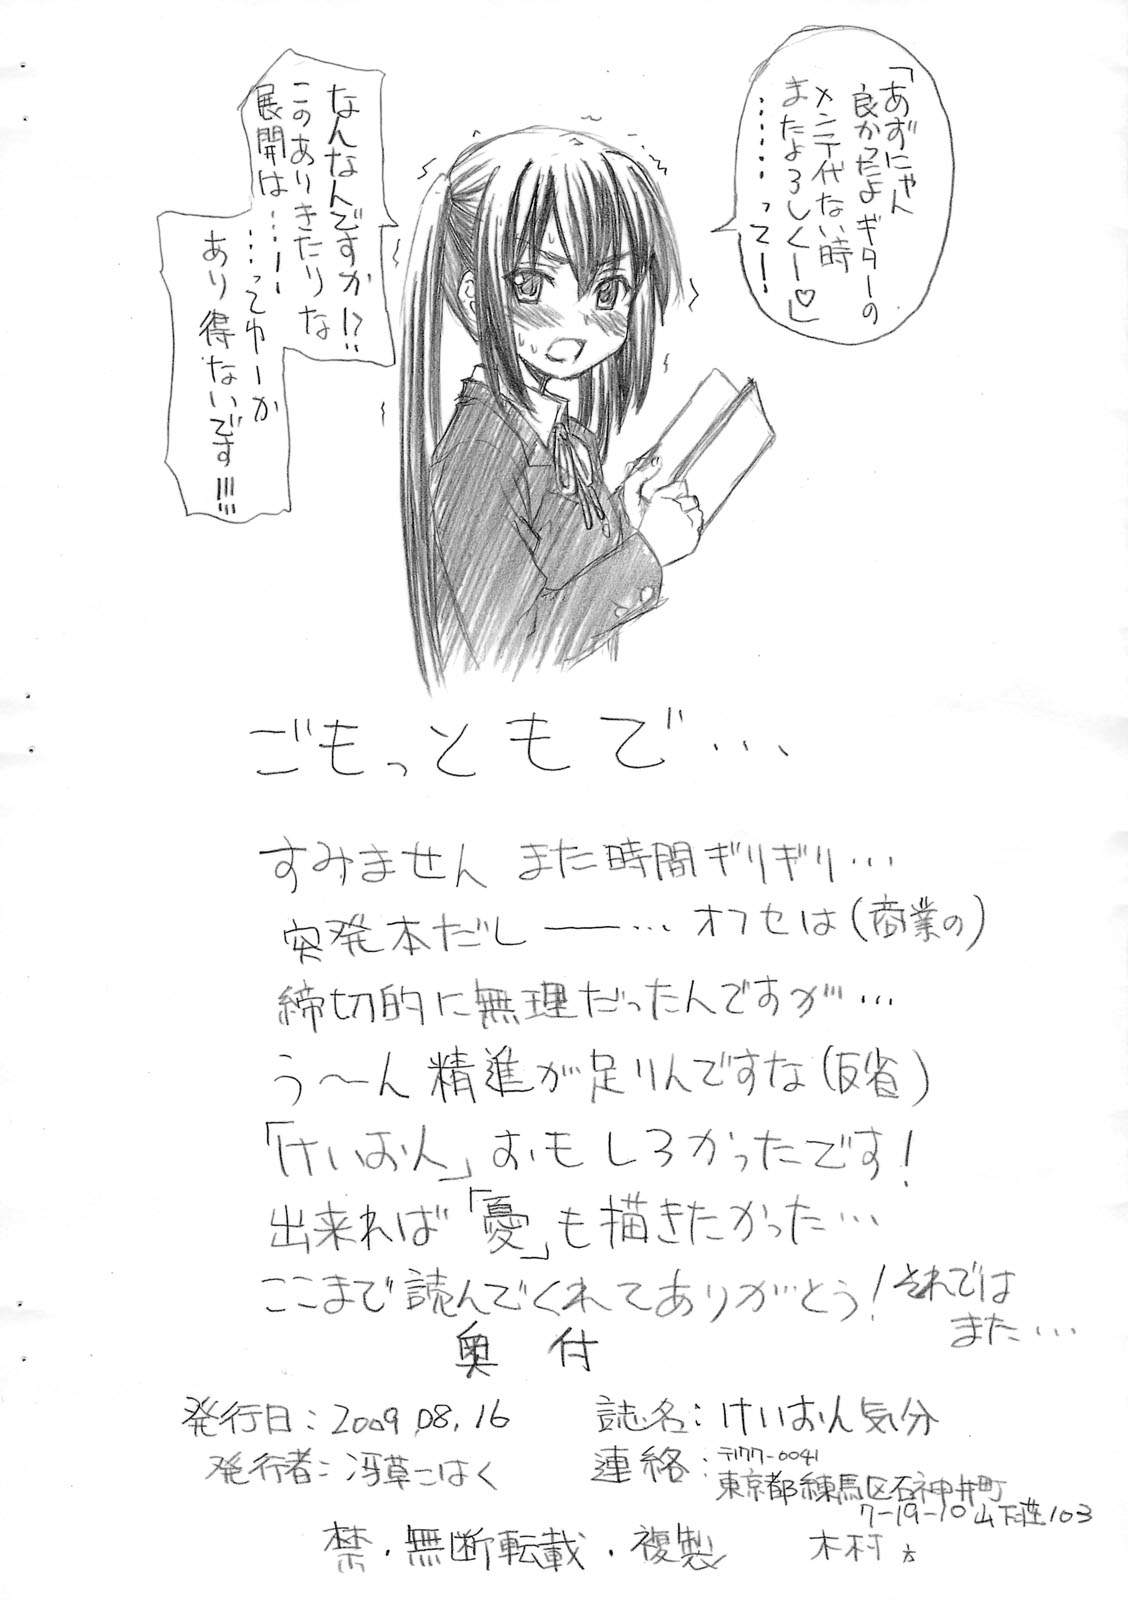 「あずにゃん
良かったよギターの
メンテ代ない時
またよろしくー♡」
……って…!
なんなんですか!?
このありきたりな
展開は…!
…ってゆーか
あり得ないです!!!
ごもっともで…
すみません また時間ギリギリ…
突発本だし——… オフセは(商業の)
締切的に無理だったんですが…
う〜ん 精進が足りんですな(反省)
「けいおん」おもしろかったです!
出来れば「憂」も描きたかった…
ここまで読んでくれてありがとう! それでは
また…
奥付
発行日:2009.08.16
誌名:けいおん気分
発行者:冴草こはく
連絡:〒177-0041
東京都練馬区石神井町
7-19-10 山下荘103
木村
禁・無断転載・複製